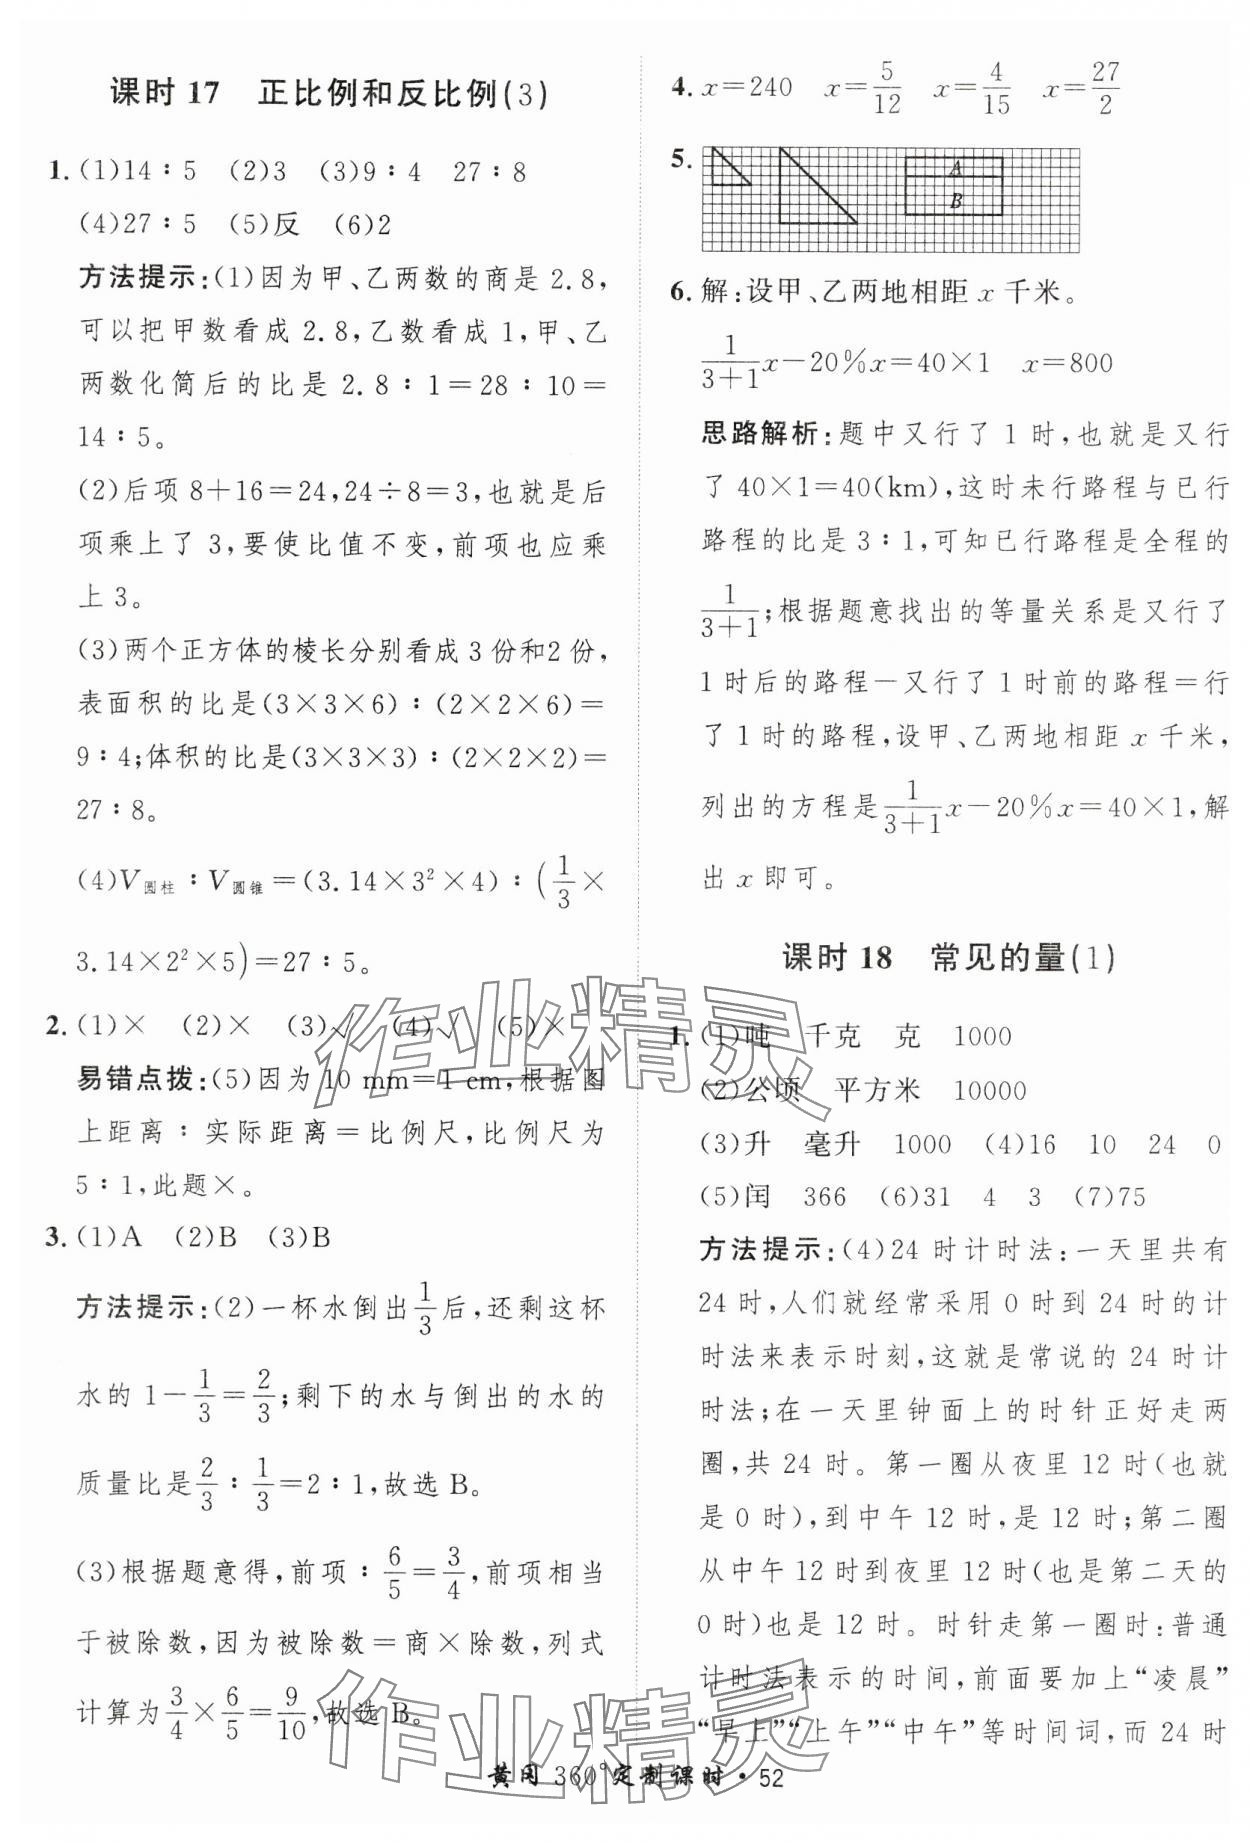 课时 17 正比例和反比例(3)
1. (1)14∶5 (2)3 (3)9∶4 27∶8
(4)27∶5 (5)反 (6)2
方法提示:(1)因为甲、乙两数的商是 2.8,
可以把甲数看成 2.8,乙数看成 1,甲、乙
两数化简后的比是 2.8∶1=28∶10=
14∶5。
(2)后项 8+16=24,24÷8=3,也就是后
项乘上了 3,要使比值不变,前项也应乘
上 3。
(3)两个正方体的棱长分别看成 3 份和2 份,
表面积的比是(3×3×6)∶(2×2×6)=
9∶4;体积的比是(3×3×3)∶(2×2×2)=
27∶8。
(4)V圆柱∶V圆锥=(3.14×3²×4)∶(1/3×
3.14×2²×5)=27∶5。
2. (1)× (2)× (3)√ (4)√ (5)×
易错点拨:(5)因为 10 mm=1 cm,根据图
上距离∶实际距离=比例尺,比例尺为
5∶1,此题×。
3. (1)A (2)B (3)B
方法提示:(2)一杯水倒出1/3后,还剩这杯
水的 1-1/3=2/3;剩下的水与倒出的水的
质量比是2/3∶1/3=2∶1,故选 B。
(3)根据题意得,前项∶6/5=3/4,前项相当
于被除数,因为被除数=商×除数,列式
计算为3/4×6/5=9/10,故选 B。
4. x=240 x=5/12 x=4/15 x=27/2
5.
A
B
6. 解:设甲、乙两地相距 x 千米。
1/(3+1)x-20%x=40×1 x=800
思路解析:题中又行了 1 时,也就是又行
了 40×1=40(km),这时未行路程与已行
路程的比是 3∶1,可知已行路程是全程的
1/(3+1);根据题意找出的等量关系是又行了
1 时后的路程-又行了 1 时前的路程=行
了 1 时的路程,设甲、乙两地相距 x 千米,
列出的方程是1/(3+1)x-20%x=40×1,解
出 x 即可。
课时 18 常见的量(1)
1. (1)吨 千克 克 1000
(2)公顷 平方米 10000
(3)升 毫升 1000 (4)16 10 24 0
(5)闰 366 (6)31 4 3 (7)75
方法提示:(4)24 时计时法:一天里共有
24 时,人们就经常采用 0 时到 24 时的计
时法来表示时刻,这就是常说的 24 时计
时法;在一天里钟面上的时针正好走两
圈,共 24 时。第一圈从夜里 12 时(也就
是 0 时),到中午 12 时,是 12 时;第二圈
从中午 12 时到夜里 12 时(也是第二天的
0 时)也是 12 时。时针走第一圈时:普通
计时法表示的时间,前面要加上“凌晨”
“早上”“上午”“中午”等时间词,而 24 时
黄冈 360°定制课时·52
作业精灵
作业精灵